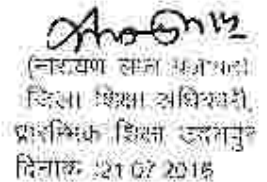 (नारायण लाल प्रजापत)
जिला शिक्षा अधिकारी,
प्रारम्भिक शिक्षा उदयपुर
दिनांक :21 07 2016